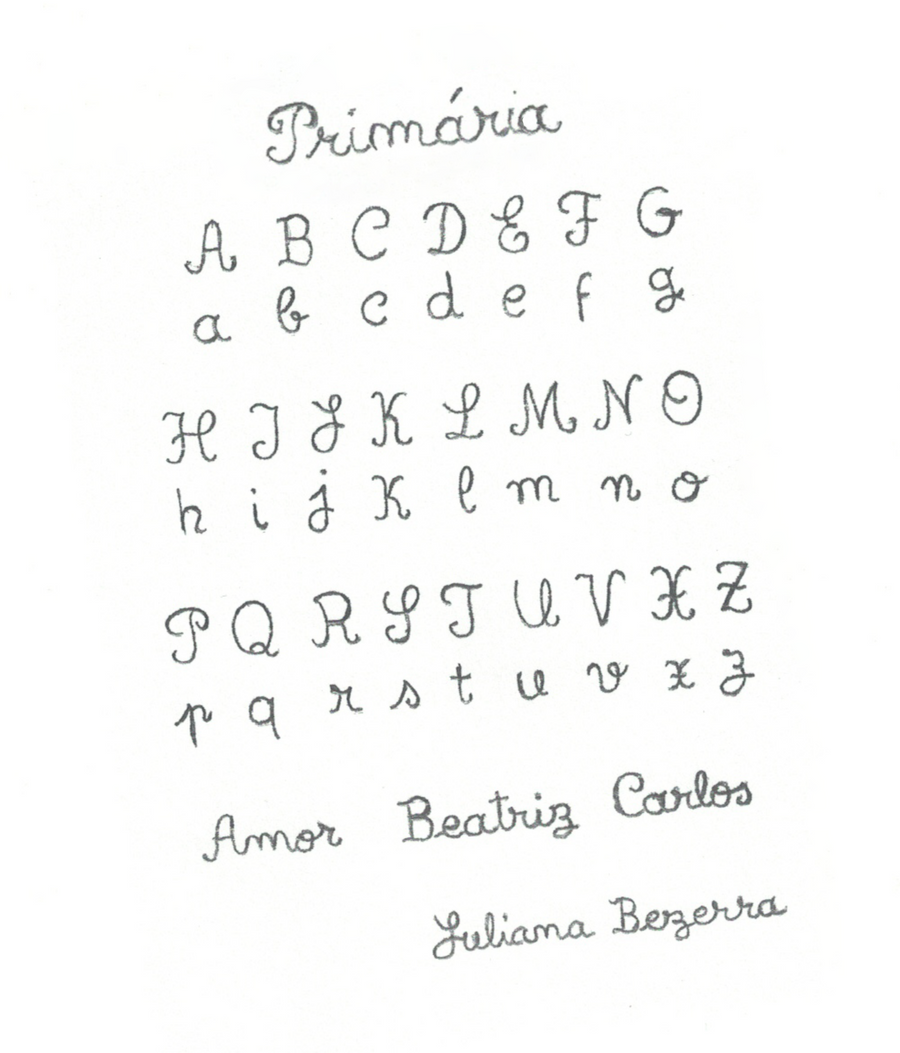 Primária
A B C D E F G
a b c d e f g
H I J K L M N O
h i j k l m n o
P Q R S T U V X Z
p q r s t u v x z
Amor Beatriz Carlos
Juliana Bezerra